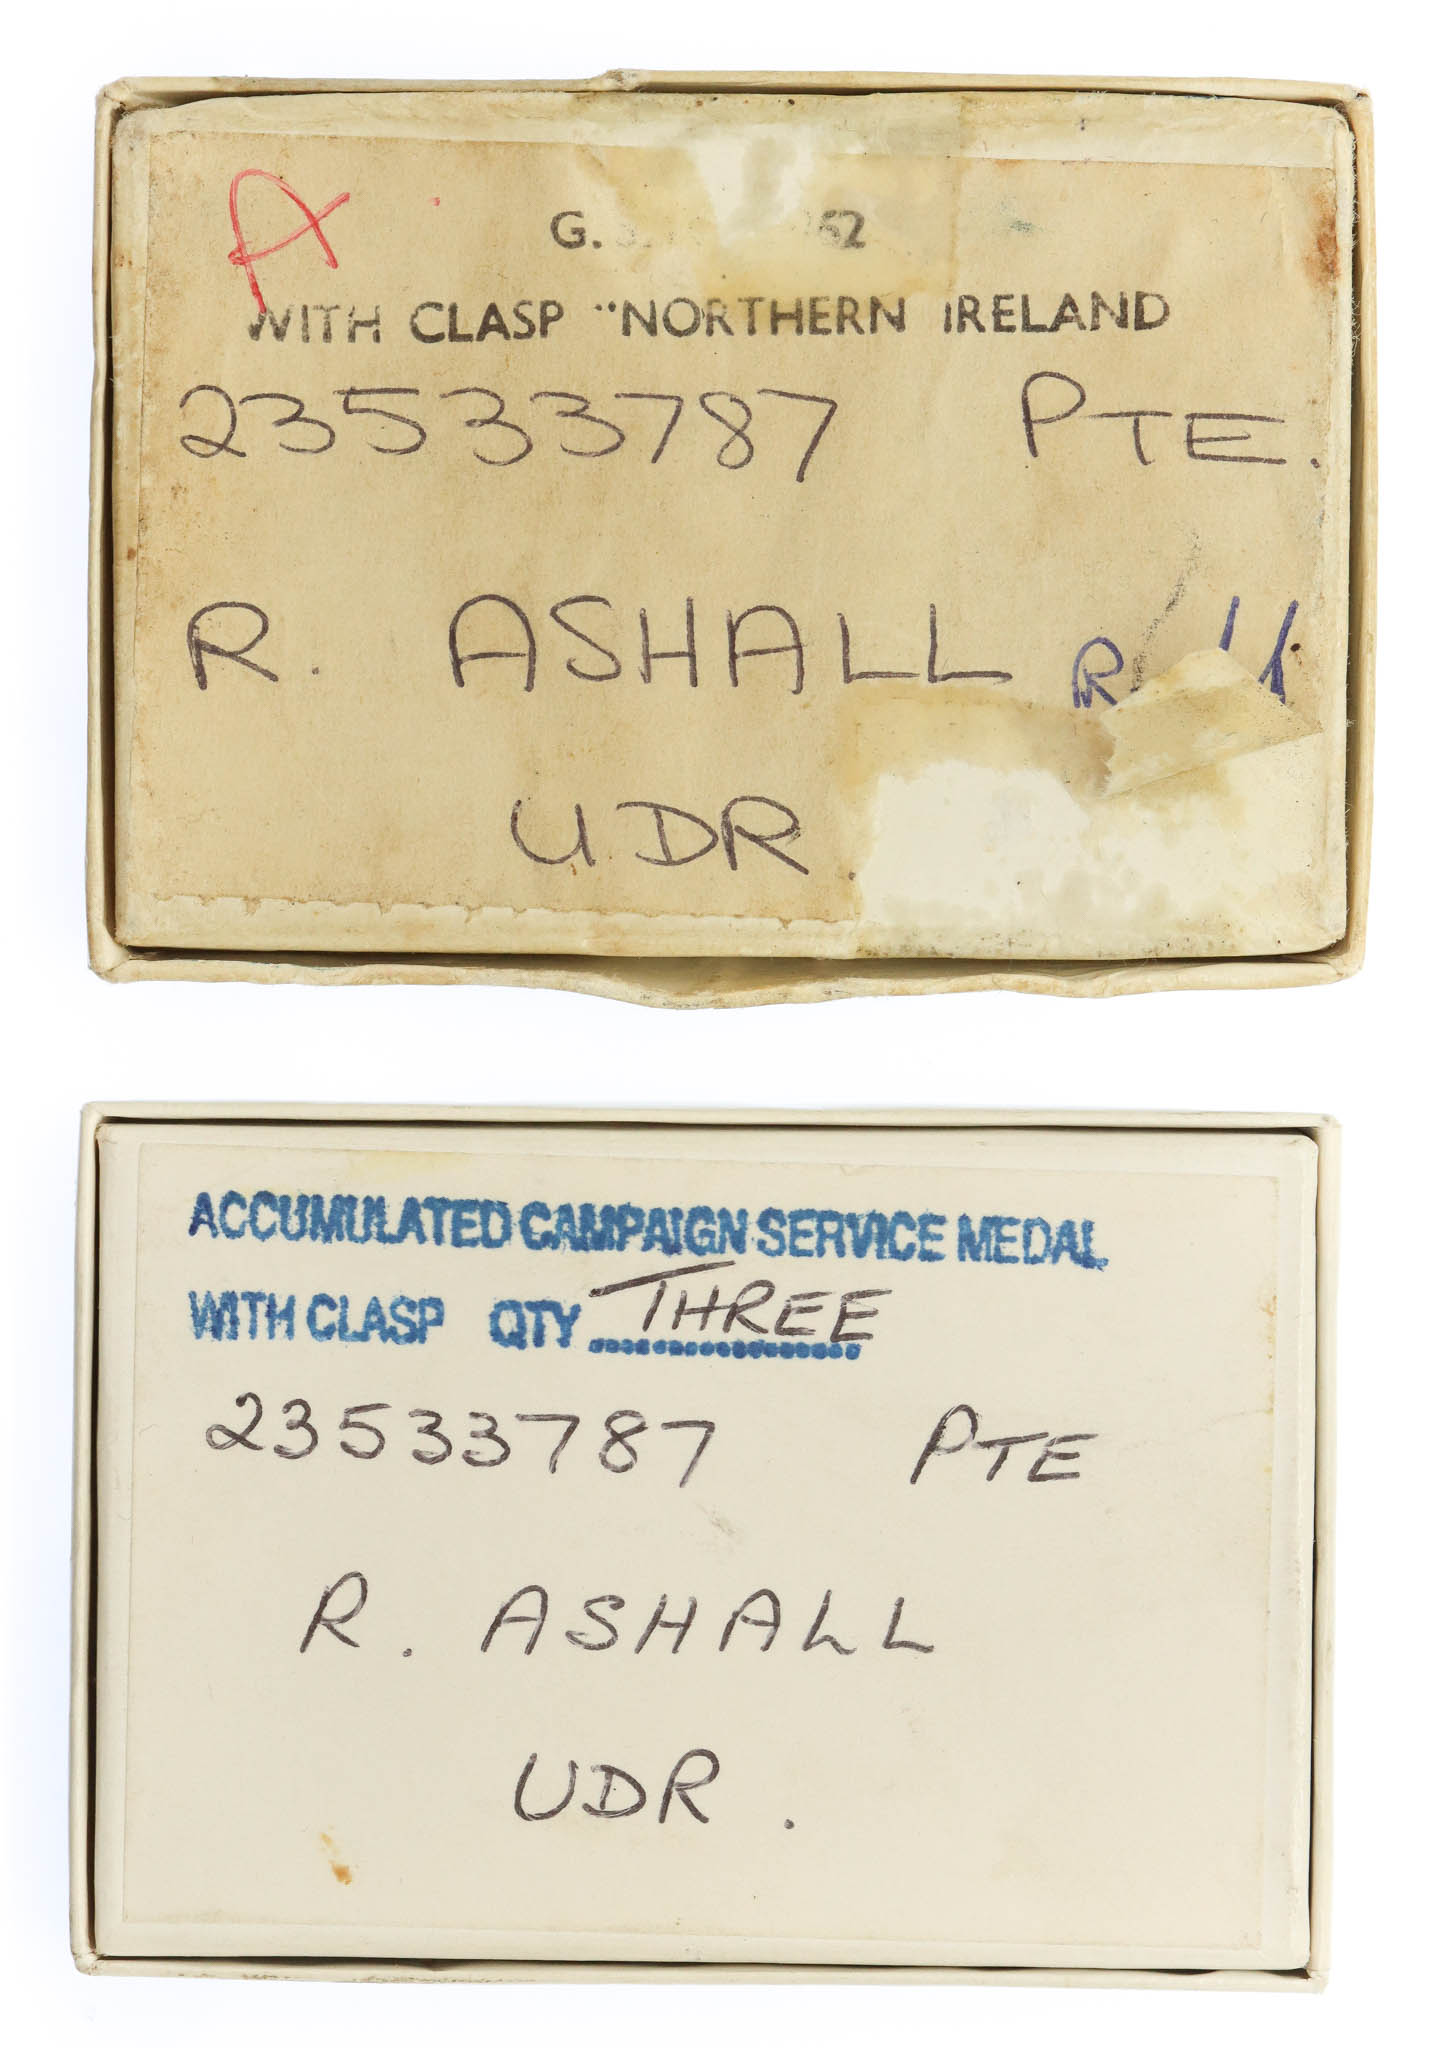 A
G. S. 62
WITH CLASP "NORTHERN IRELAND
23533787 PTE.
R. ASHALL R
UDR
ACCUMULATED CAMPAIGN SERVICE MEDAL
WITH CLASP QTY THREE
23533787 PTE
R. ASHALL
UDR.